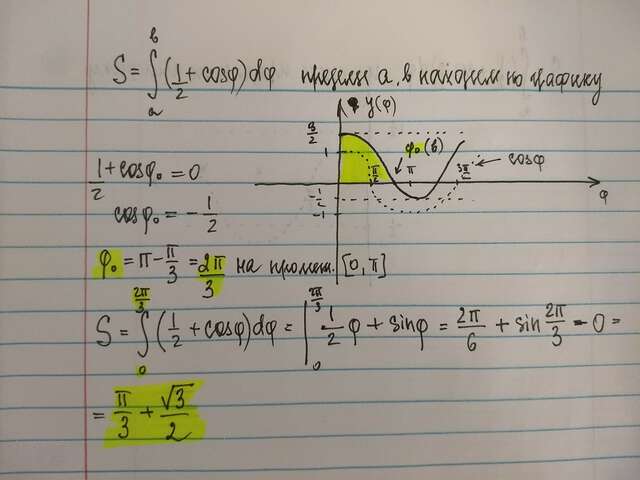 S = ∫ₐᵇ (1/2 + cosφ) dφ пределы a, b находим по графику
y(φ)
3/2
1
φ₀ (b)
π/2
π
3π/2
cosφ
φ
-1/2
-1
1/2 + cosφ₀ = 0
cosφ₀ = -1/2
φ₀ = π - π/3 = 2π/3 на промеж. [0, π]
S = ∫₀^(2π/3) (1/2 + cosφ) dφ = |₀^(2π/3) 1/2 φ + sinφ = 2π/6 + sin 2π/3 - 0 =
= π/3 + √3/2